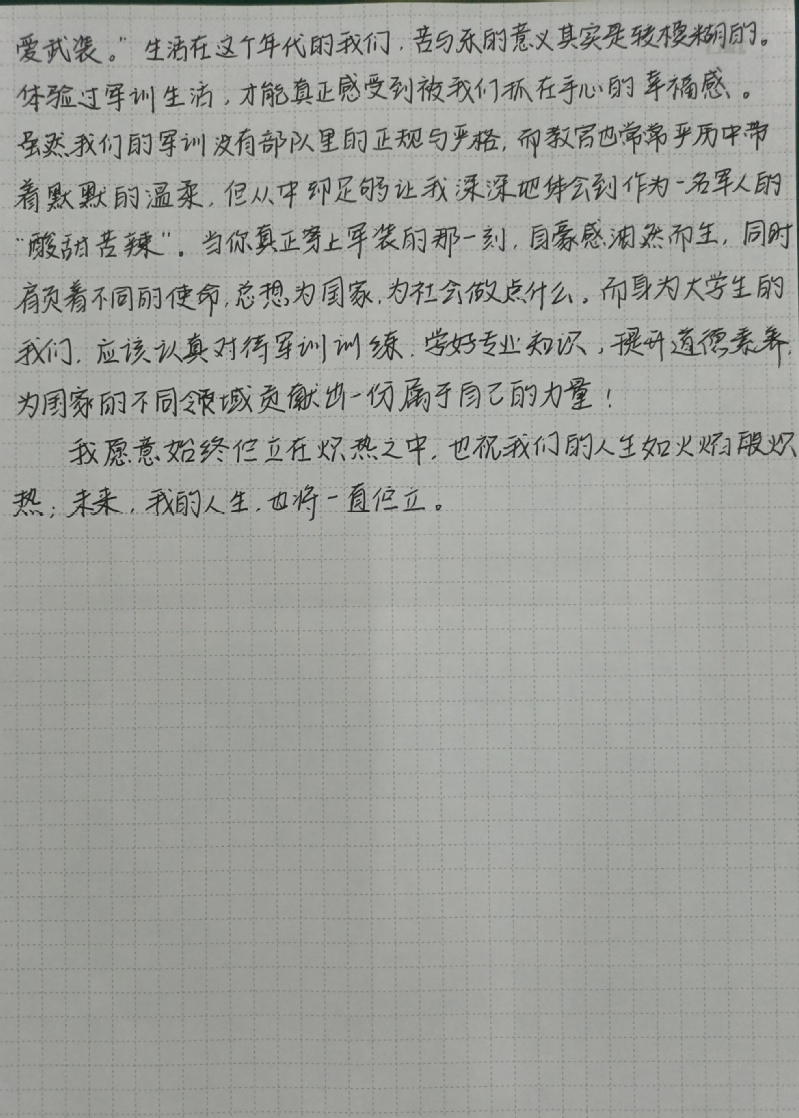 爱武装。”生活在这个年代的我们，苦与乐的意义其实是较模糊的。
体验过军训生活，才能真正感受到被我们抓在手心的幸福感。
虽然我们的军训没有部队里的正规与严格，而教官也常常严厉中带
着默默的温柔，但从中却足够让我深深地体会到作为一名军人的
“酸甜苦辣”。当你真正穿上军装的那一刻，自豪感油然而生，同时
肩负着不同的使命，总想为国家，为社会做点什么。而身为大学生的
我们，应该认真对待军训训练，学好专业知识，提升道德素养，
为国家的不同领域贡献出一份属于自己的力量！
我愿意始终伫立在炽热之中，也祝我们的人生如火焰般炽
热；未来，我的人生，也将一直伫立。